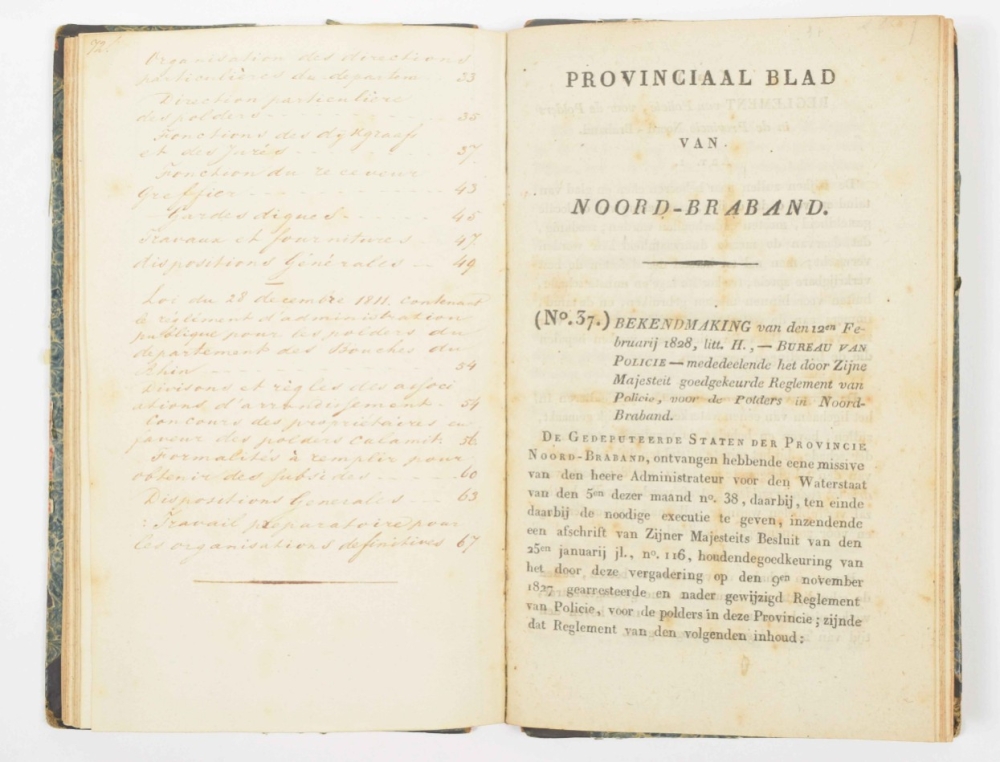 72.
Organisation des directions
particulières du départem - 33
Direction particuliere
des polders - - - - - - - - - 35
Fonctions des dykgraafs
et des Jurés - - - - - - - - 37
Fonction du receveur
Greffier - - - - - - - - - - 43
- Gardes digues - - - - - - 45
Travaux et fournitures - - 47
dispositions Générales - - 49
Loi du 28 decembre 1811. contenant
le règlement d'administration
publique pour les polders du
departement des Bouches du
Rhin - - - - - - - - - - - - 54
Divisons et règles des associ
ations d'arrondissement - 54
Concours des propriétaires en
faveur des polders Calamit. 56
Formalités à remplir pour
obtenir des subsides - - - 60
Dispositions Generales - - 63
: Travail préparatoire pour
les organisations definitives 67
PROVINCIAAL BLAD
VAN
NOORD-BRABAND.
(No. 37.) BEKENDMAKING van den 12en Fe-
bruarij 1828, litt. H., — BUREAU VAN
POLICIE — mededeelende het door Zijne
Majesteit goedgekeurde Reglement van
Policie, voor de Polders in Noord-
Braband.
DE GEDEPUTEERDE STATEN DER PROVINCIE
NOORD-BRABAND, ontvangen hebbende eene missive
van den heere Administrateur voor den Waterstaat
van den 5en dezer maand no. 38, daarbij, ten einde
daarbij de noodige executie te geven, inzendende
een afschrift van Zijner Majesteits Besluit van den
25en januarij jl., no. 116, houdendegoedkeuring van
het door deze vergadering op den 9en november
1827 gearresteerde en nader gewijzigd Reglement
van Policie, voor de polders in deze Provincie; zijnde
dat Reglement van den volgenden inhoud: